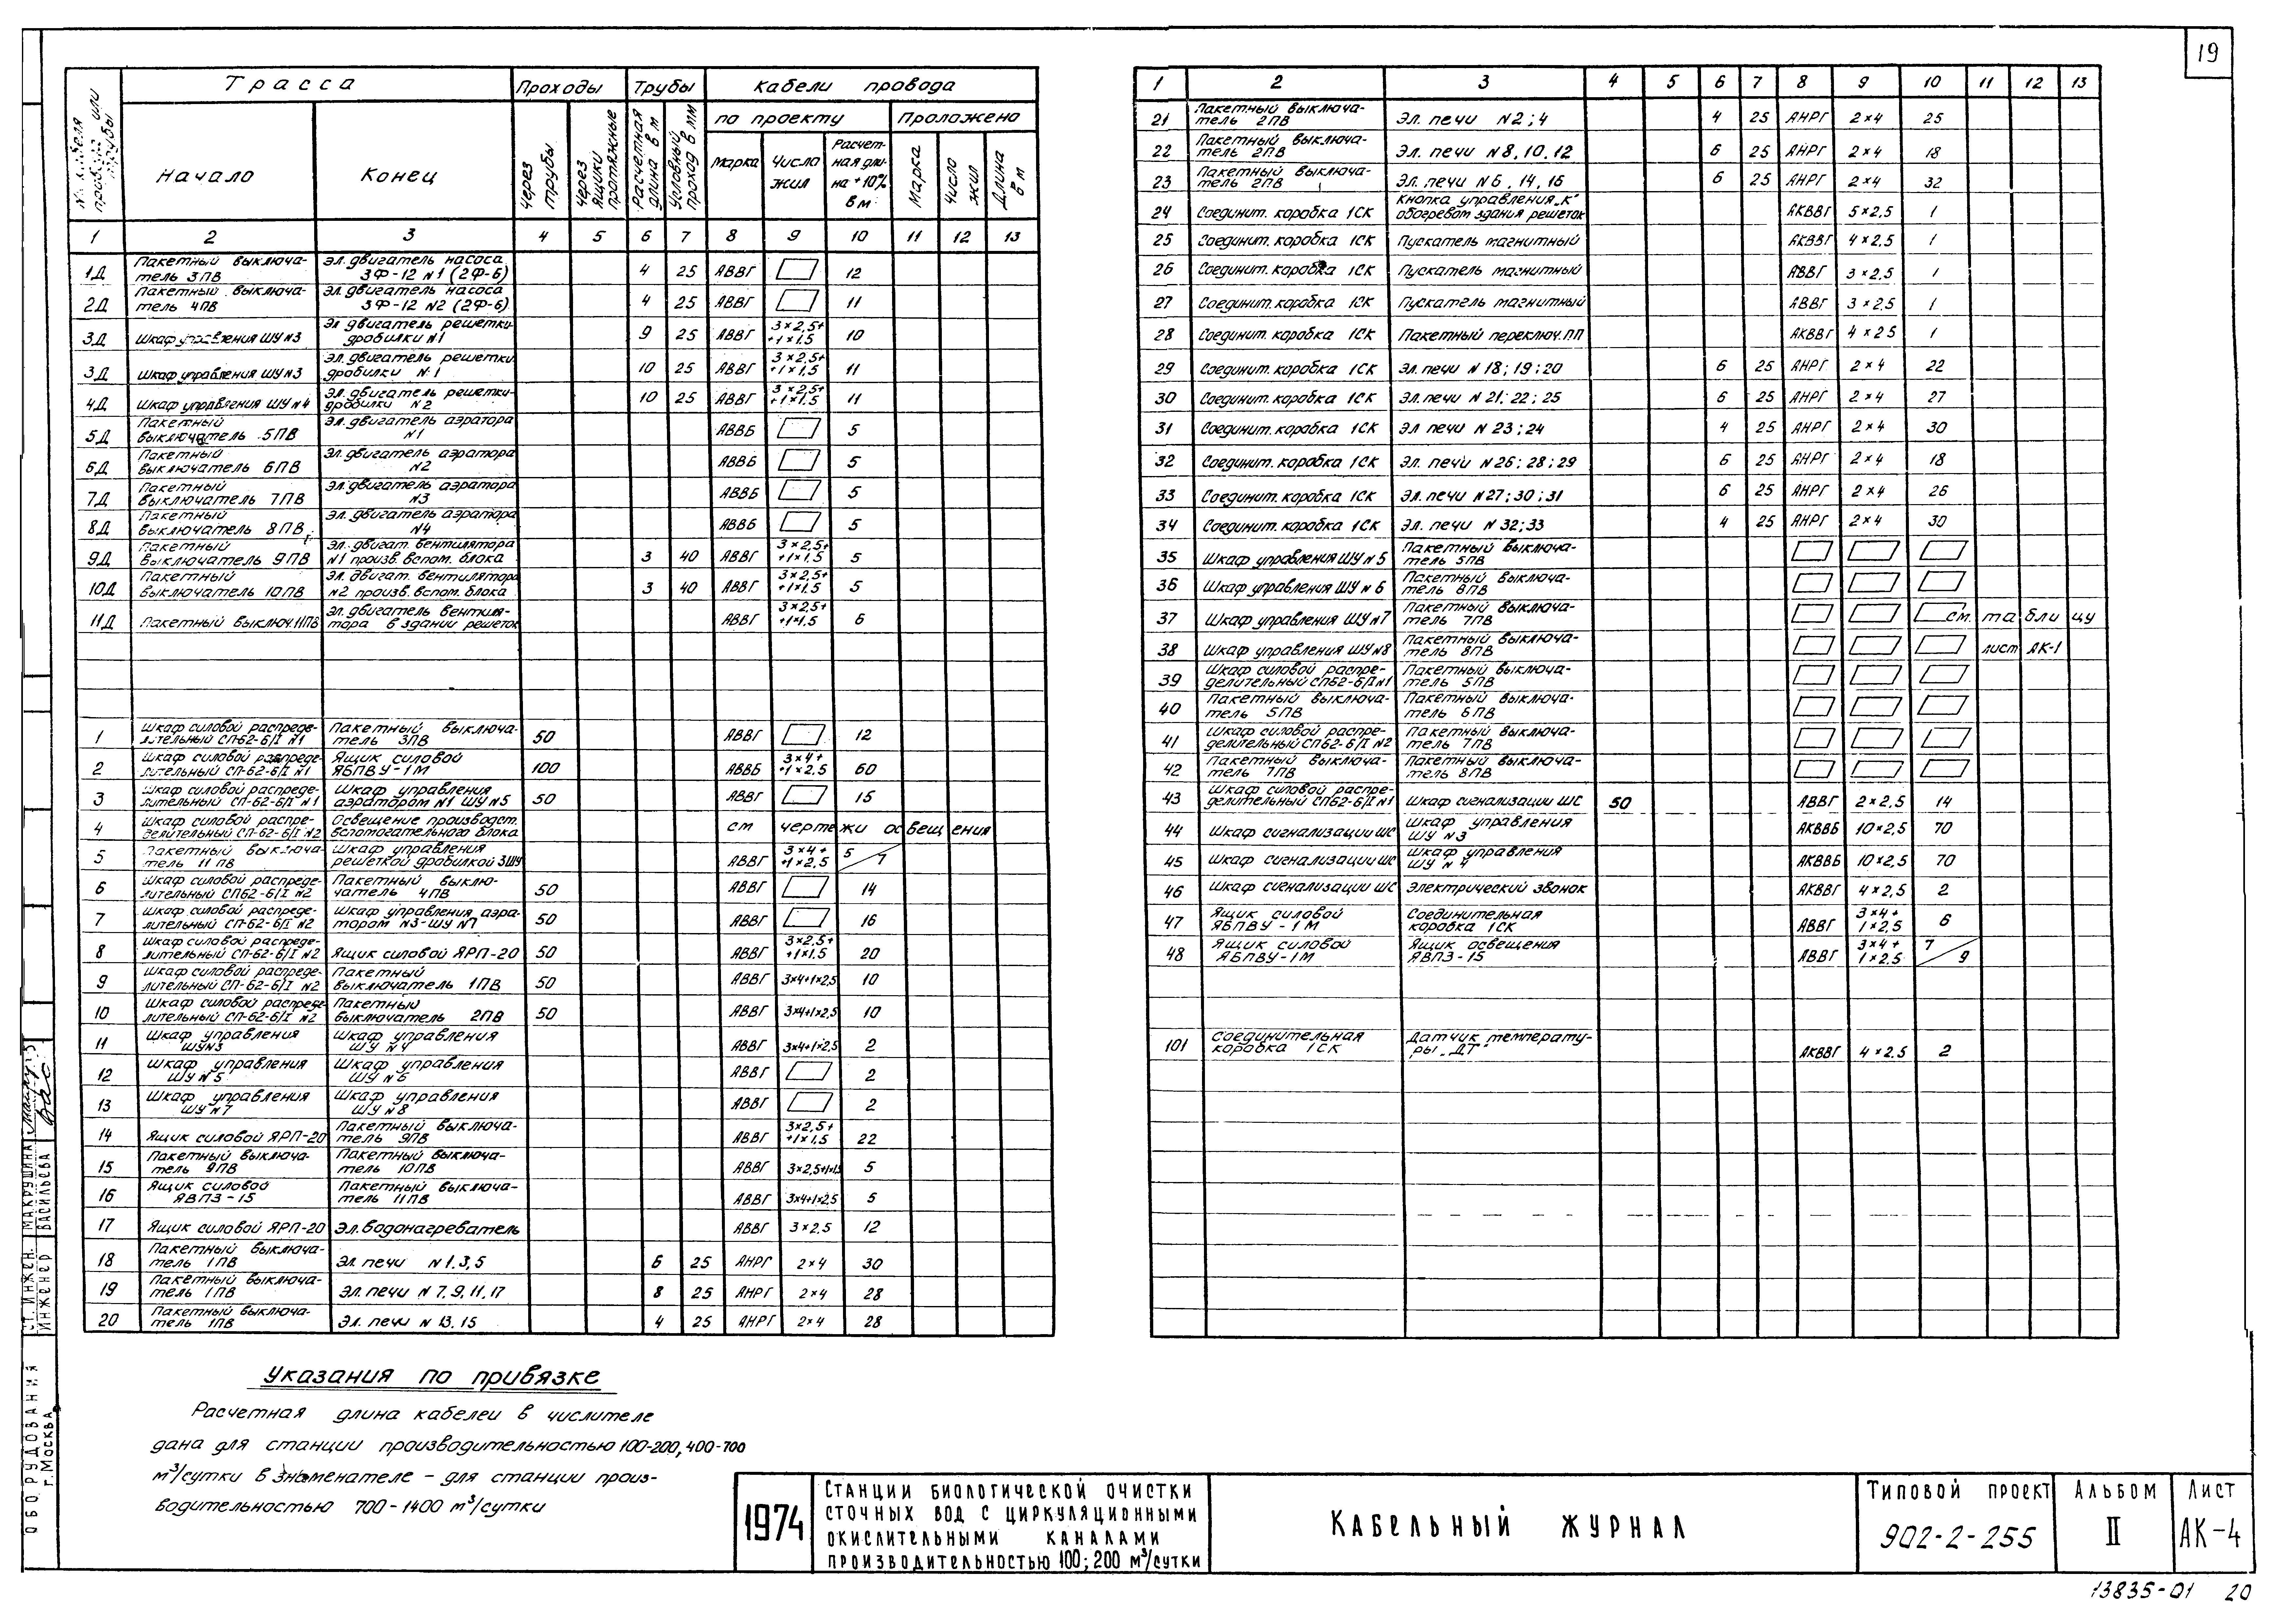 19
№ кабеля провода или трубы | Трасса | Проходы | Трубы | Кабели провода
по проекту | Проложено
Начало | Конец | через трубы | через ящики протяжные | Расчетная длина в м | Условный проход в мм | Марка | Числа жил | Расчетная длина +10% в м | Марка | Число жил | Длина в м
1 2 3 4 5 6 7 8 9 10 11 12 13
1Д Пакетный выключатель 3ПВ Эл.двигатель насоса 3Ф-12 №1 (2Ф-6) 4 25 АВВГ 12
2Д Пакетный выключатель 4ПВ Эл.двигатель насоса 3Ф-12 №2 (2Ф-6) 4 25 АВВГ 11
3Д Шкаф управления ШУ №3 Эл двигатель решетки дробилки №1 9 25 АВВГ 3×2,5+ +1×1,5 10
3Д Шкаф управления ШУ №3 Эл.двигатель решетки дробилки №1 10 25 АВВГ 3×2,5+ +1×1,5 11
4Д Шкаф управления ШУ №4 Эл.двигатель решетки-дробилки №2 10 25 АВВГ 3×2,5+ +1×1,5 11
5Д Пакетный выключатель 5ПВ Эл.двигатель аэратора №1 АВВБ 5
6Д Пакетный выключатель 6ПВ Эл.двигатель аэратора №2 АВВБ 5
7Д Пакетный выключатель 7ПВ Эл.двигатель аэратора №3 АВВБ 5
8Д Пакетный выключатель 8ПВ Эл.двигатель аэратора №4 АВВБ 5
9Д Пакетный выключатель 9ПВ Эл.двигат. вентилятора №1 произв.вспом. блока 3 40 АВВГ 3×2,5+ +1×1,5 5
10Д Пакетный выключатель 10ПВ Эл.двигат. вентилятора №2 произв.вспом. блока 3 40 АВВГ 3×2,5+ +1×1,5 5
11Д Пакетный выключ.11ПВ Эл.двигатель вентилятора в здании решеток АВВГ 3×2,5+ +1×1,5 6
1 Шкаф силовой распределительный СП-62-6/I №1 Пакетный выключатель 3ПВ 50 АВВГ 12
2 Шкаф силовой распределительный СП-62-6/I №1 Ящик силовой ЯБПВУ-1М 100 АВВБ 3×4+ +1×2,5 60
3 Шкаф силовой распределительный СП-62-6/I №1 Шкаф управления аэратором №1 ШУ №5 50 АВВГ 15
4 Шкаф силовой распределительный СП-62-6/I №2 Освещение производст. вспомогательного блока см чертежи освещения
5 Пакетный выключатель 11ПВ Шкаф управления решеткой дробилкой 3ШУ АВВГ 3×4+ +1×2,5 5/7
6 Шкаф силовой распределительный СП62-6/I №2 Пакетный выключатель 4ПВ 50 АВВГ 14
7 Шкаф силовой распределительный СП-62-6/I №2 Шкаф управления аэратором №3-ШУ №7 50 АВВГ 16
8 Шкаф силовой распределительный СП-62-6/I №2 Ящик силовой ЯРП-20 50 АВВГ 3×2,5+ +1×1,5 20
9 Шкаф силовой распределительный СП-62-6/I №2 Пакетный выключатель 1ПВ 50 АВВГ 3×4+1×2,5 10
10 Шкаф силовой распределительный СП-62-6/I №2 Пакетный выключатель 2ПВ 50 АВВГ 3×4+1×2,5 10
11 Шкаф управления ШУ№3 Шкаф управления ШУ №4 АВВГ 3×4+1×2,5 2
12 Шкаф управления ШУ №5 Шкаф управления ШУ №6 АВВГ 2
13 Шкаф управления ШУ №7 Шкаф управления ШУ №8 АВВГ 2
14 Ящик силовой ЯРП-20 Пакетный выключатель 9ПВ АВВГ 3×2,5+ +1×1,5 22
15 Пакетный выключатель 9ПВ Пакетный выключатель 10ПВ АВВГ 3×2,5+1×1,5 5
16 Ящик силовой ЯВПЗ-15 Пакетный выключатель 11ПВ АВВГ 3×4+1×2,5 5
17 Ящик силовой ЯРП-20 Эл.водонагреватель АВВГ 3×2,5 12
18 Пакетный выключатель 1ПВ Эл. печи №1,3,5 6 25 АНРГ 2×4 30
19 Пакетный выключатель 1ПВ Эл. печи №7,9,11,17 8 25 АНРГ 2×4 28
20 Пакетный выключатель 1ПВ Эл. печи №13,15 4 25 АНРГ 2×4 28
1 2 3 4 5 6 7 8 9 10 11 12 13
21 Пакетный выключатель 2ПВ Эл. печи №2;4 4 25 АНРГ 2×4 25
22 Пакетный выключатель 2ПВ Эл. печи №8,10,12 6 25 АНРГ 2×4 18
23 Пакетный выключатель 2ПВ Эл. печи №6,14,16 6 25 АНРГ 2×4 32
24 Соединит. коробка 1СК Кнопка управления „К" обогревом здания решеток АКВВГ 5×2,5 1
25 Соединит. коробка 1СК Пускатель магнитный АКВВГ 4×2,5 1
26 Соединит. коробка 1СК Пускатель магнитный АВВГ 3×2,5 1
27 Соединит. коробка 1СК Пускатель магнитный АВВГ 3×2,5 1
28 Соединит. коробка 1СК Пакетный переключ.ПП АКВВГ 4×2.5 1
29 Соединит. коробка 1СК Эл. печи №18;19;20 6 25 АНРГ 2×4 22
30 Соединит. коробка 1СК Эл. печи №21;22;25 6 25 АНРГ 2×4 27
31 Соединит. коробка 1СК Эл печи №23;24 4 25 АНРГ 2×4 30
32 Соединит. коробка 1СК Эл. печи №26;28;29 6 25 АНРГ 2×4 18
33 Соединит. коробка 1СК Эл. печи №27;30;31 6 25 АНРГ 2×4 26
34 Соединит. коробка 1СК Эл. печи №32;33 4 25 АНРГ 2×4 30
35 Шкаф управления ШУ №5 Пакетный выключатель 5ПВ
36 Шкаф управления ШУ №6 Пакетный выключатель 6ПВ
37 Шкаф управления ШУ №7 Пакетный выключатель 7ПВ см. таблицу
38 Шкаф управления ШУ №8 Пакетный выключатель 8ПВ лист АК-1
39 Шкаф силовой распределительный СП62-6/I №1 Пакетный выключатель 5ПВ
40 Пакетный выключатель 5ПВ Пакетный выключатель 6ПВ
41 Шкаф силовой распределительный СП62-6/I №2 Пакетный выключатель 7ПВ
42 Пакетный выключатель 7ПВ Пакетный выключатель 8ПВ
43 Шкаф силовой распределительный СП62-6/I №1 Шкаф сигнализации ШС 50 АВВГ 2×2,5 14
44 Шкаф сигнализации ШС Шкаф управления ШУ №3 АКВВБ 10×2,5 70
45 Шкаф сигнализации ШС Шкаф управления ШУ №4 АКВВБ 10×2,5 70
46 Шкаф сигнализации ШС Электрический звонок АКВВГ 4×2,5 2
47 Ящик силовой ЯБПВУ-1М Соединительная коробка 1СК АВВГ 3×4+ 1×2,5 6
48 Ящик силовой ЯБПВУ-1М Ящик освещения ЯВПЗ-15 АВВГ 3×4+ 1×2.5 7/9
101 Соединительная коробка 1СК Датчик температуры „ДТ" АКВВГ 4×2.5 2
Указания по привязке
Расчетная длина кабелей в числителе
дана для станции производительностью 100-200, 400-700
м³/сутки в знаменателе – для станции произ-
водительностью 700-1400 м³/сутки
1974
Станции биологической очистки
сточных вод с циркуляционными
окислительными каналами
производительностью 100; 200 м³/сутки
Кабельный журнал
Типовой проект
902-2-255
Альбом
II
Лист
АК-4
13835-01 20
оборудования
г.Москва
Ст.инжен. Макрушина
Инженер Васильева